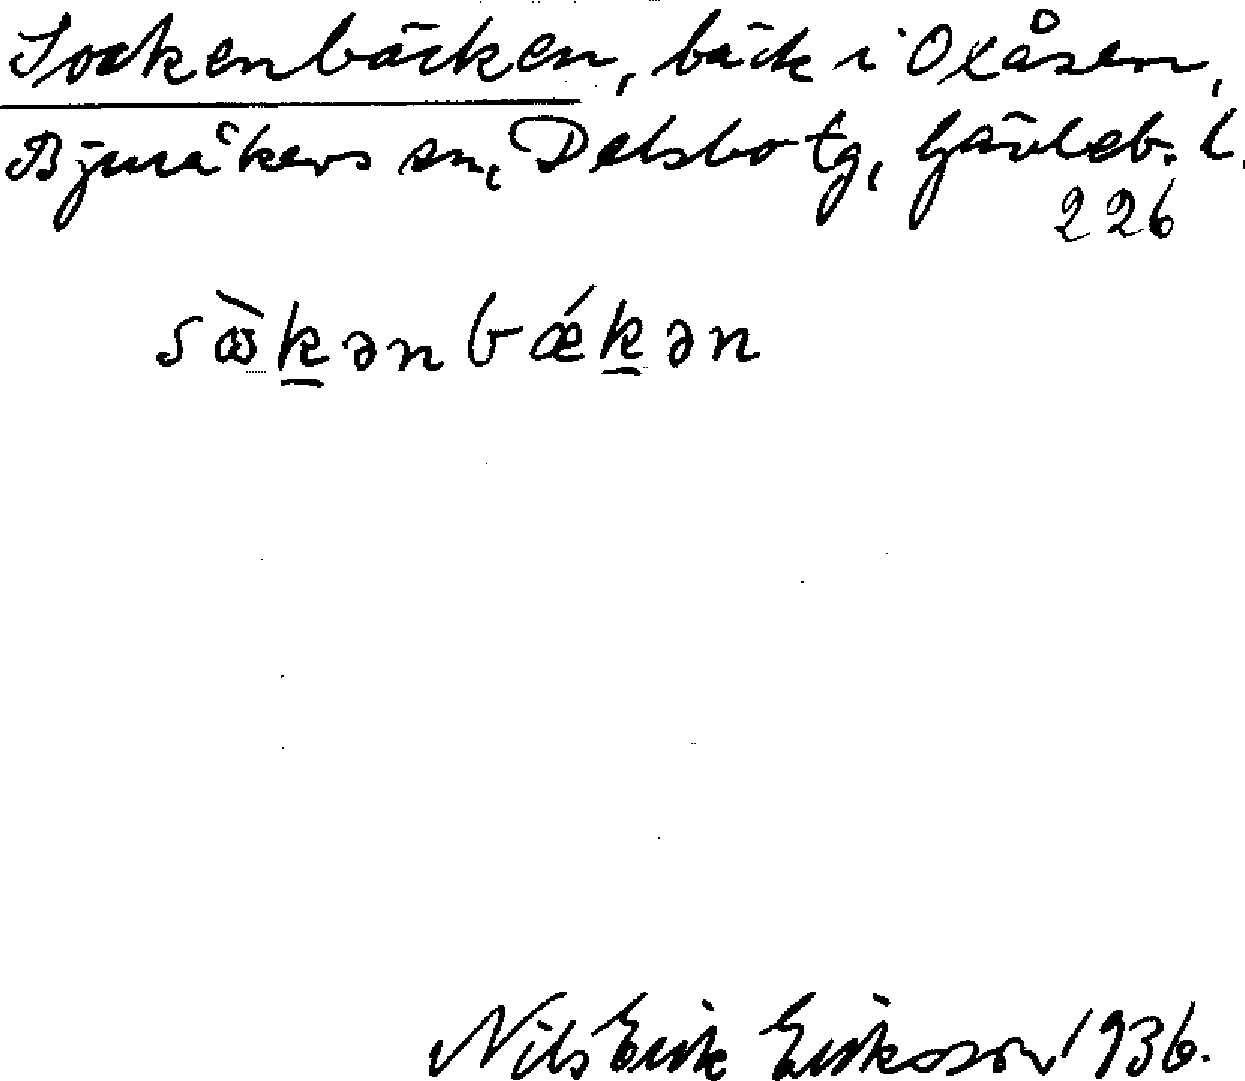 Sockenbäcken, bäck i Oxåsen,
Bjuråkers sn, Delsbo tg, Gävleb. l.
226
sö̀k̠ənbǽk̠ən
Nils Erik Eriksson 1936.